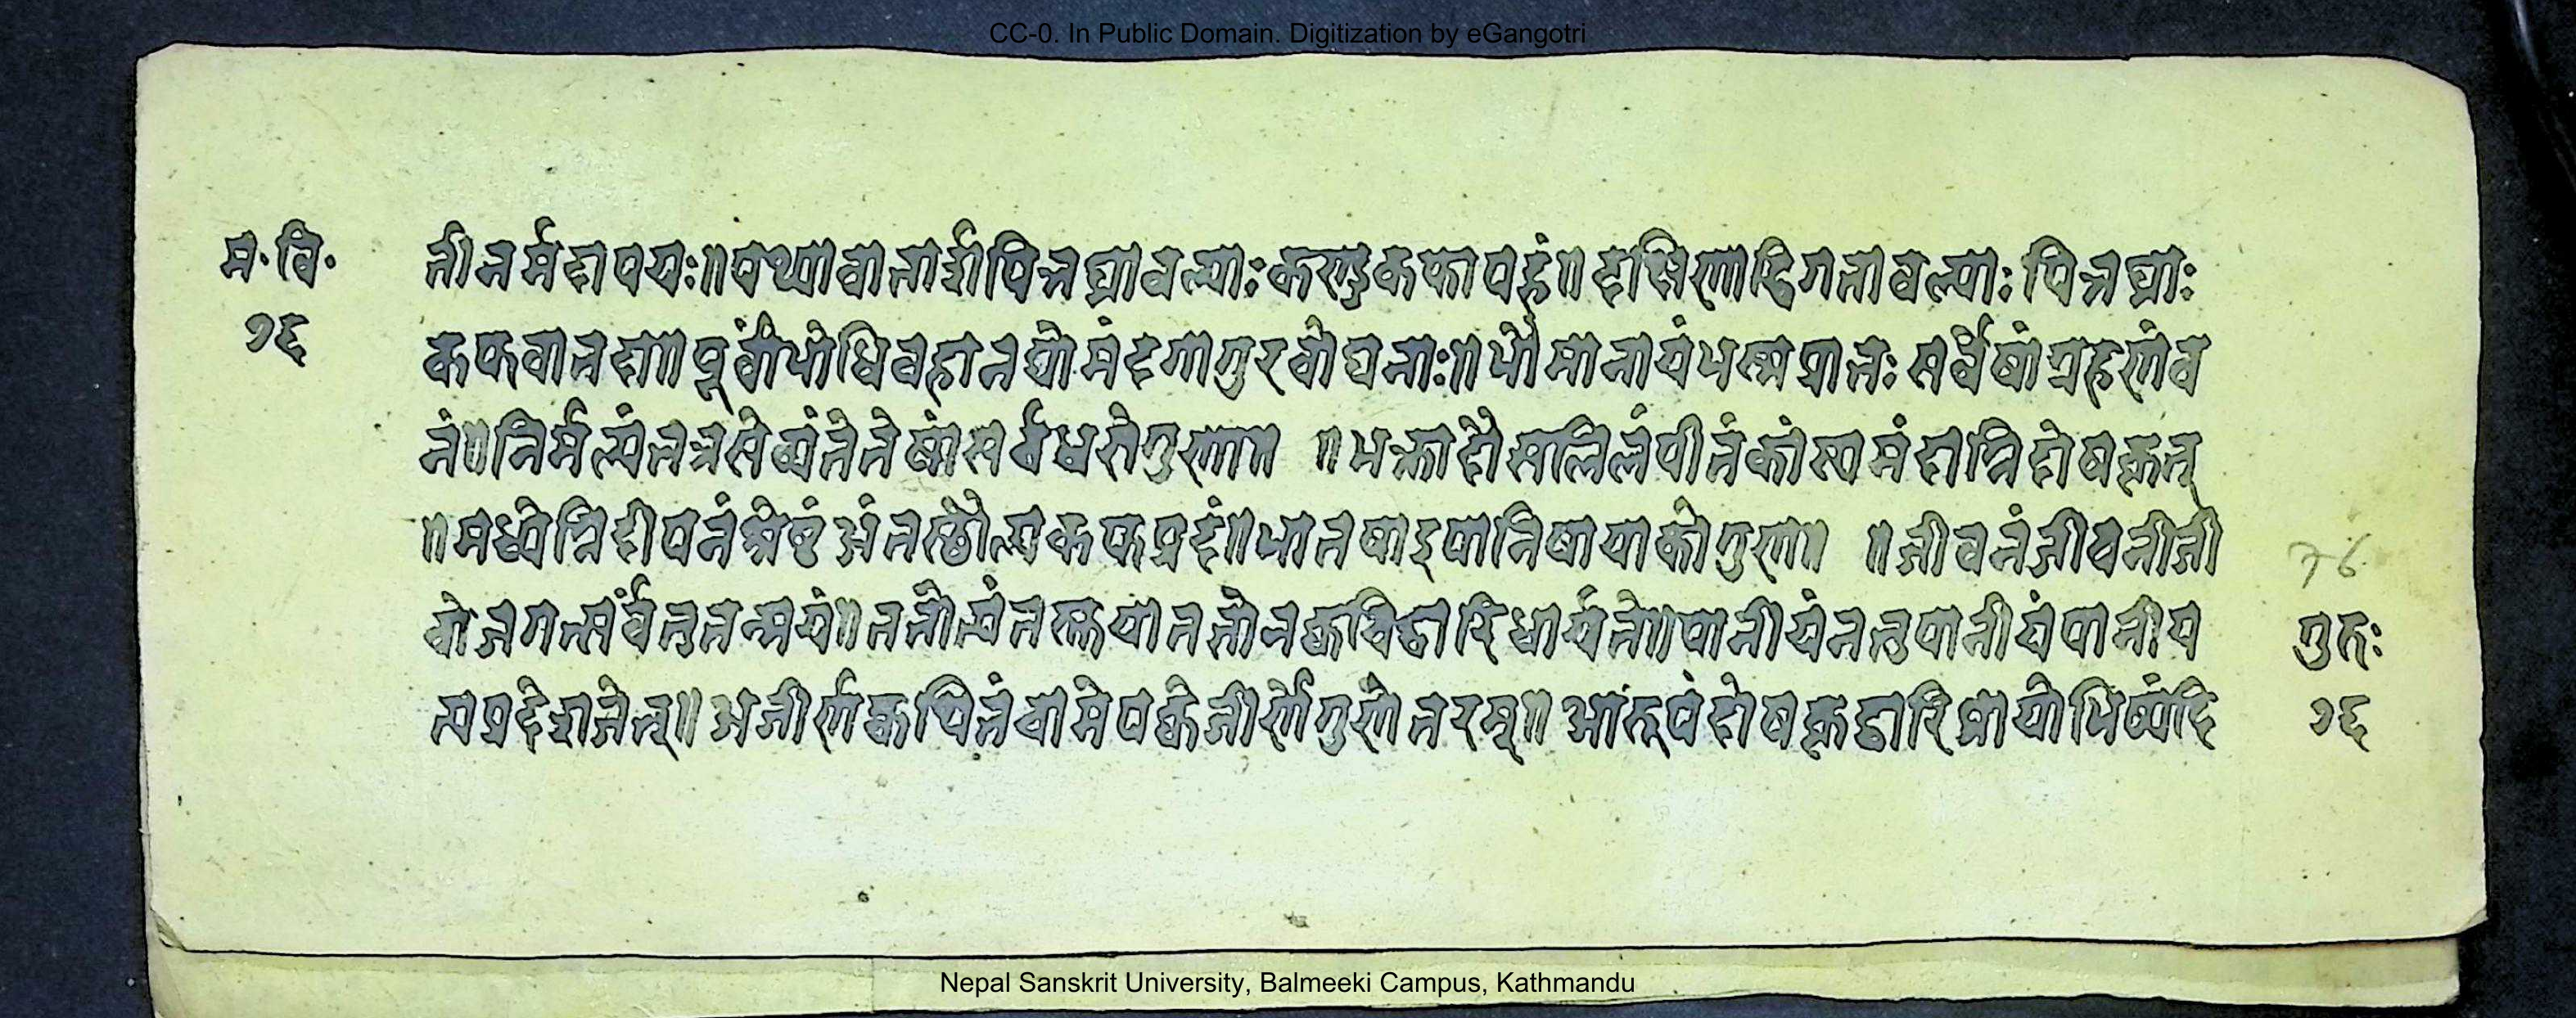 CC-0. In Public Domain. Digitization by eGangotri
म॰ वि॰
७६
तीनर्मदापयः॥पथ्यावातार्शपित्तघ्नावल्याःकण्डुकफापहं॥दक्षिणाद्रिगतावल्याःपित्तघ्नाः
कफवातदा॥पूर्वांपोधिवहानद्योमंदगागुरवोघनाः॥पौमानायंपश्चप्रातःसर्वेषांग्रहणंव
नं॥निर्मल्यंतत्रसेव्यंतेतेषांसर्वेधसेगुणा॥ ॥भक्तादौसलिलंपीतंकांस्यमंदाग्निदोषकृत्
॥मध्येग्निदीपनंश्रेष्ठंअंतस्थौल्यकफप्रदं॥पानषाड्पानिषायाकोगुणा॥ ॥जीवनंजीवनीजी
वोजगत्सर्वंतुतन्मयं॥ततोत्यंतरुक्तयाततोनक्वचिद्वारिधार्यते॥पानीयंनतुपानीयंपानीय
त्यप्रदेशजेत्॥अजीर्णेक्वथितंचामेपक्वेजीर्णेगुणेतरम्॥आंरूपंदोषकृद्वारिप्रायोभिष्यंदि
76
गुरुः
७६
Nepal Sanskrit University, Balmeeki Campus, Kathmandu